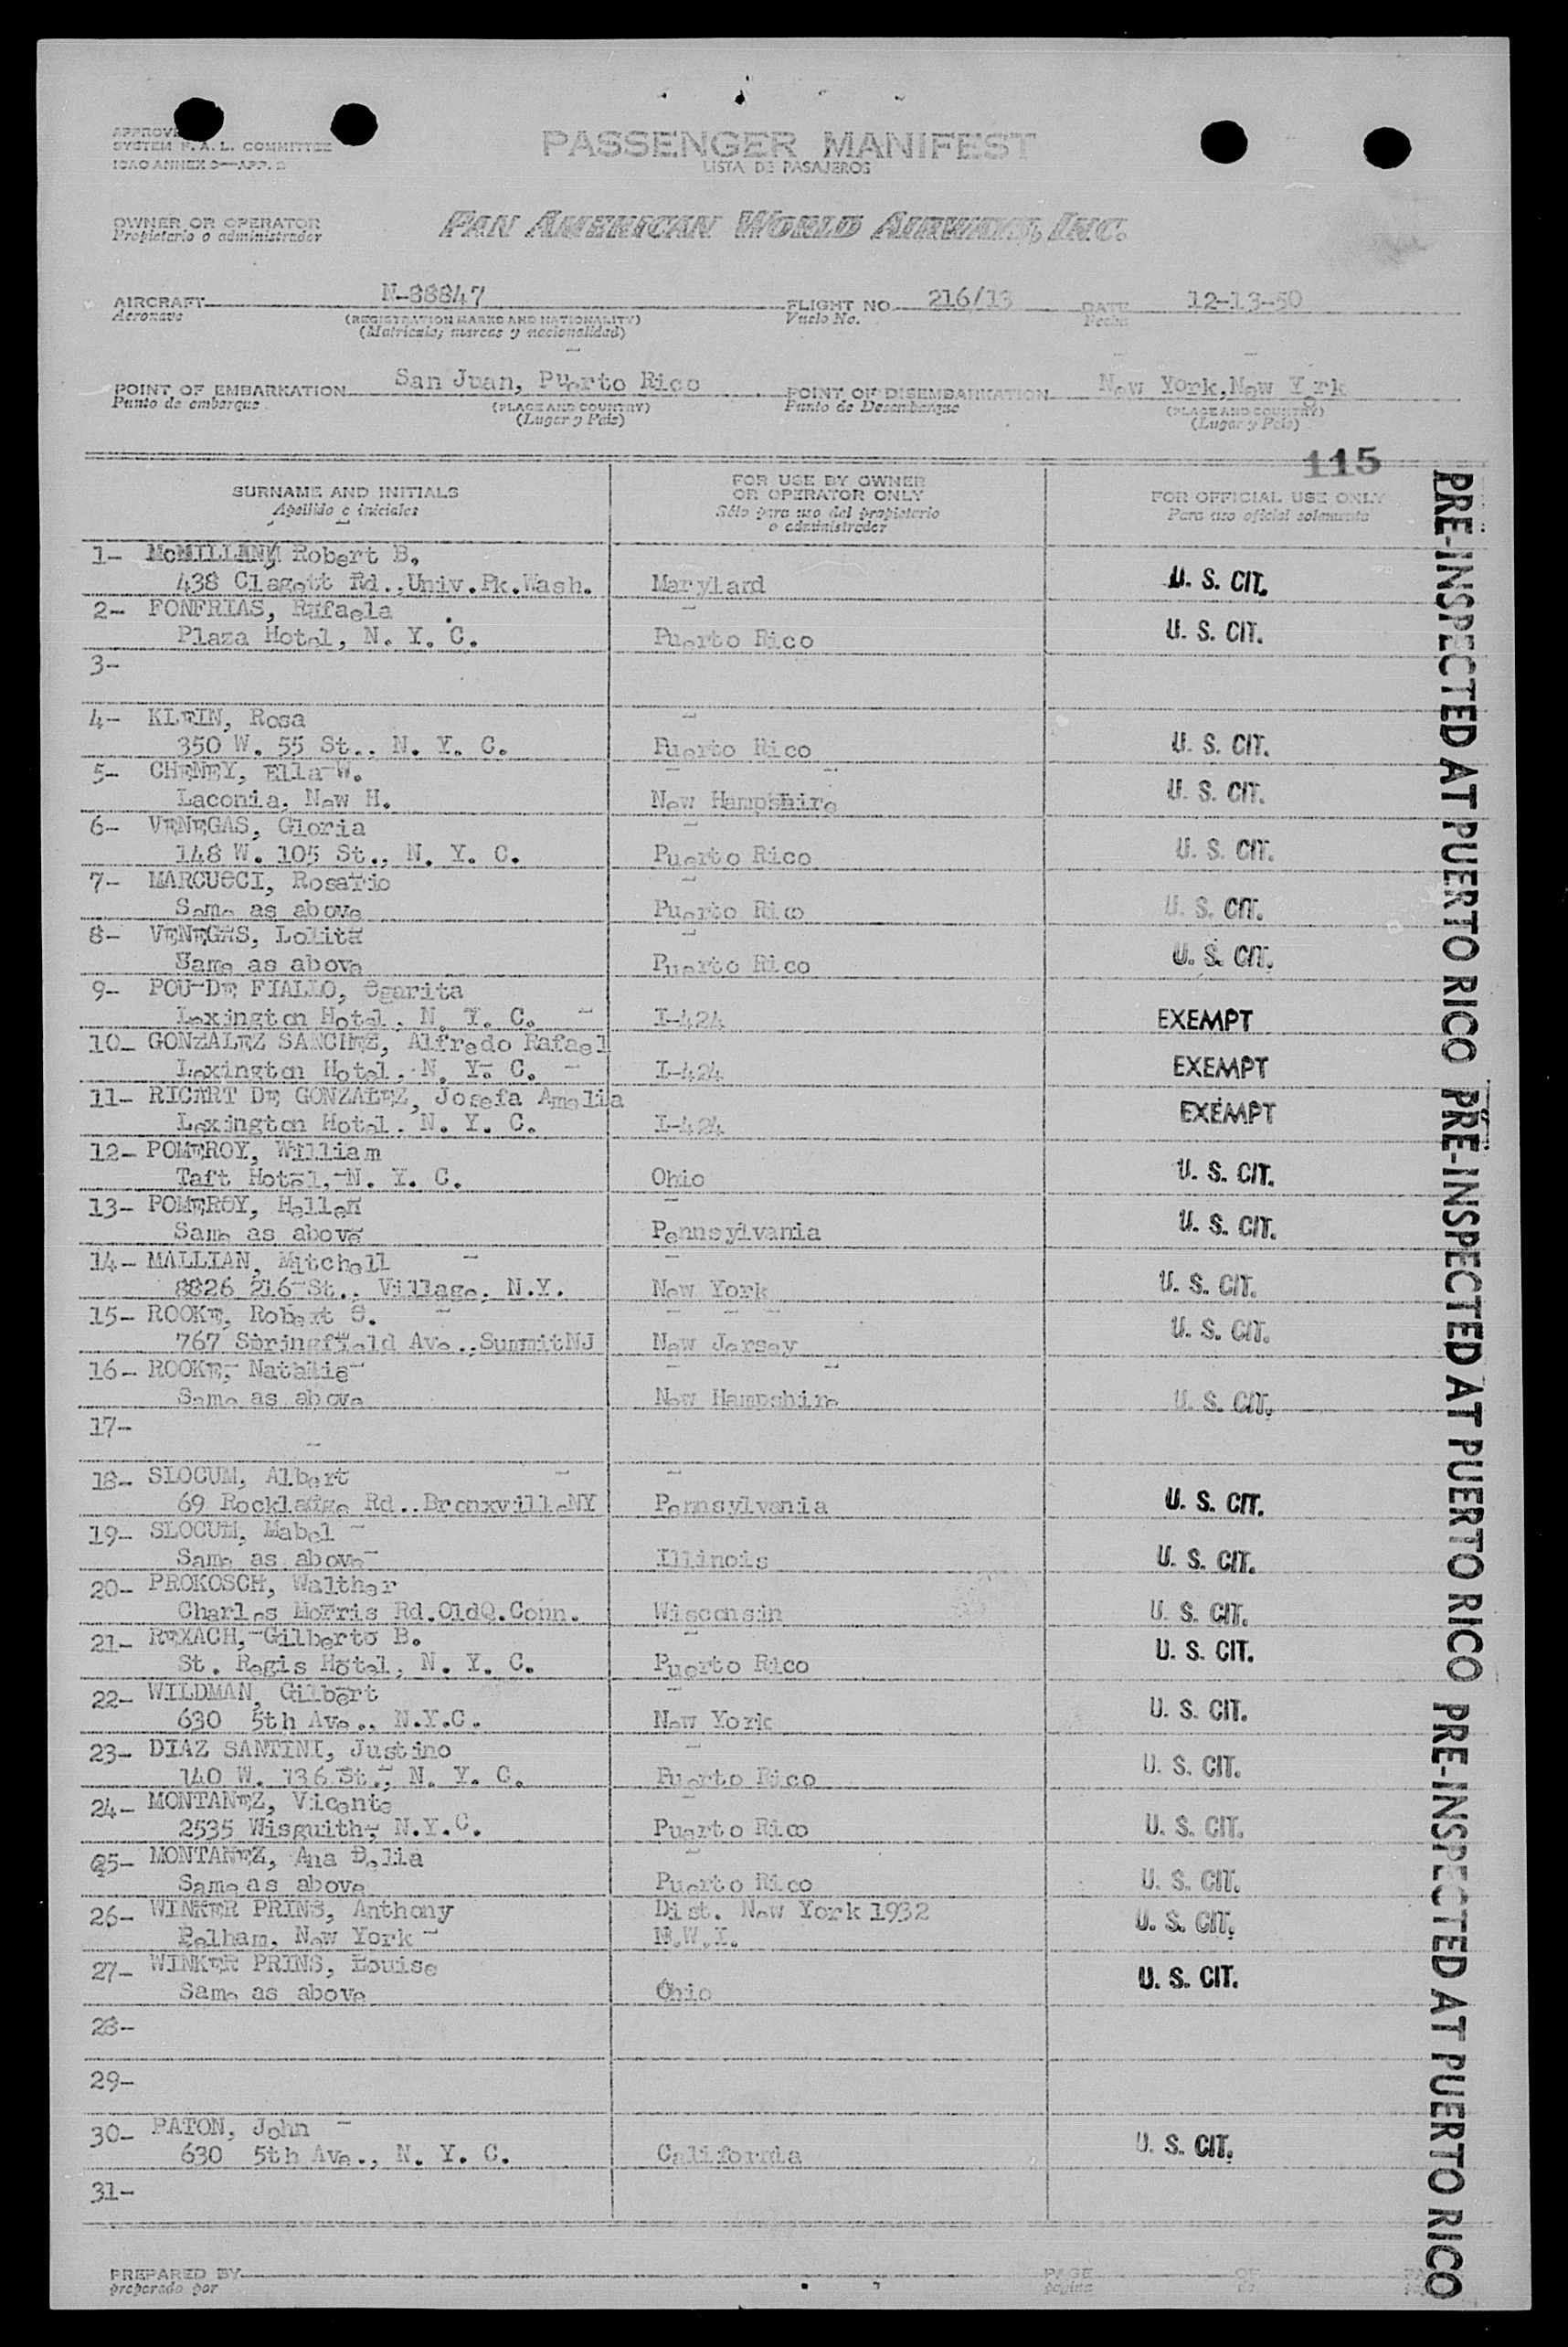 APPROVE
SYSTEM F. A. L. COMMITTEE
ICAO ANNEX 9—APP. 2
PASSENGER MANIFEST
LISTA DE PASAJEROS
OWNER OR OPERATOR
Propietario o administrador
PAN AMERICAN WORLD AIRWAYS, INC.
AIRCRAFT N-88847 FLIGHT NO. 216/13 DATE 12-13-50
Aeronave (REGISTRATION MARKS AND NATIONALITY) Vuelo No. Fecha
(Matricula; marcas y nacionalidad)
POINT OF EMBARKATION San Juan, Puerto Rico POINT OF DISEMBARKATION New York,New York
Punto de embarque (PLACE AND COUNTRY) Punto de Desembarque (PLACE AND COUNTRY)
(Lugar y Pais) (Lugar y Pais)
115
SURNAME AND INITIALS FOR USE BY OWNER OR OPERATOR ONLY FOR OFFICIAL USE ONLY
Apellido e iniciales Sólo para uso del propietario o administrador Para uso oficial solamente
1- McMILLAN, Robert B.
438 Clagett Rd.,Univ.Pk.Wash. Maryland U. S. CIT.
2- FONFRIAS, Rafaela
Plaza Hotel, N. Y. C. Puerto Rico U. S. CIT.
3-
4- KLEIN, Rosa
350 W. 55 St., N. Y. C. Puerto Rico U. S. CIT.
5- CHENEY, Ella W.
Laconia, New H. New Hampshire U. S. CIT.
6- VENEGAS, Gloria
148 W. 105 St., N. Y. C. Puerto Rico U. S. CIT.
7- MARCUCCI, Rosario
Same as above Puerto Rico U. S. CIT.
8- VENEGAS, Lolita
Same as above Puerto Rico U. S. CIT.
9- POU DE FIALLO, Ogarita
Lexington Hotel, N. Y. C. I-424 EXEMPT
10- GONZALEZ SANCHEZ, Alfredo Rafael
Lexington Hotel, N. Y. C. I-424 EXEMPT
11- RICART DE GONZALEZ, Josefa Amelia
Lexington Hotel, N. Y. C. I-424 EXEMPT
12- POMEROY, William
Taft Hotel, N. Y. C. Ohio U. S. CIT.
13- POMEROY, Hellen
Same as above Pennsylvania U. S. CIT.
14- MALLIAN, Mitchell
8826 216 St., Village, N.Y. New York U. S. CIT.
15- ROOKE, Robert S.
767 Springfield Ave.,SummitNJ New Jersey U. S. CIT.
16- ROOKE, Natalie
Same as above New Hampshire U. S. CIT.
17-
18- SLOCUM, Albert
69 Rockledge Rd.,BronxvilleNY Pennsylvania U. S. CIT.
19- SLOCUM, Mabel
Same as above Illinois U. S. CIT.
20- PROKOSCH, Walther
Charles Morris Rd.OldQ.Conn. Wisconsin U. S. CIT.
21- REXACH, Gilberto B.
St. Regis Hotel, N. Y. C. Puerto Rico U. S. CIT.
22- WILDMAN, Gilbert
630 5th Ave., N.Y.C. New York U. S. CIT.
23- DIAZ SANTINI, Justino
140 W. 136 St., N. Y. C. Puerto Rico U. S. CIT.
24- MONTANEZ, Vicente
2535 Wisguith, N.Y.C. Puerto Rico U. S. CIT.
25- MONTANEZ, Ana Delia
Same as above Puerto Rico U. S. CIT.
26- WINKER PRINS, Anthony Dist. New York 1932
Pelham, New York N.W.I. U. S. CIT.
27- WINKER PRINS, Louise
Same as above Ohio U. S. CIT.
28-
29-
30- PATON, John
630 5th Ave., N. Y. C. California U. S. CIT.
31-
PREPARED BY PAGE OF PA
preparado por pagina de
PRE-INSPECTED AT PUERTO RICO
PRE-INSPECTED AT PUERTO RICO
PRE-INSPECTED AT PUERTO RICO